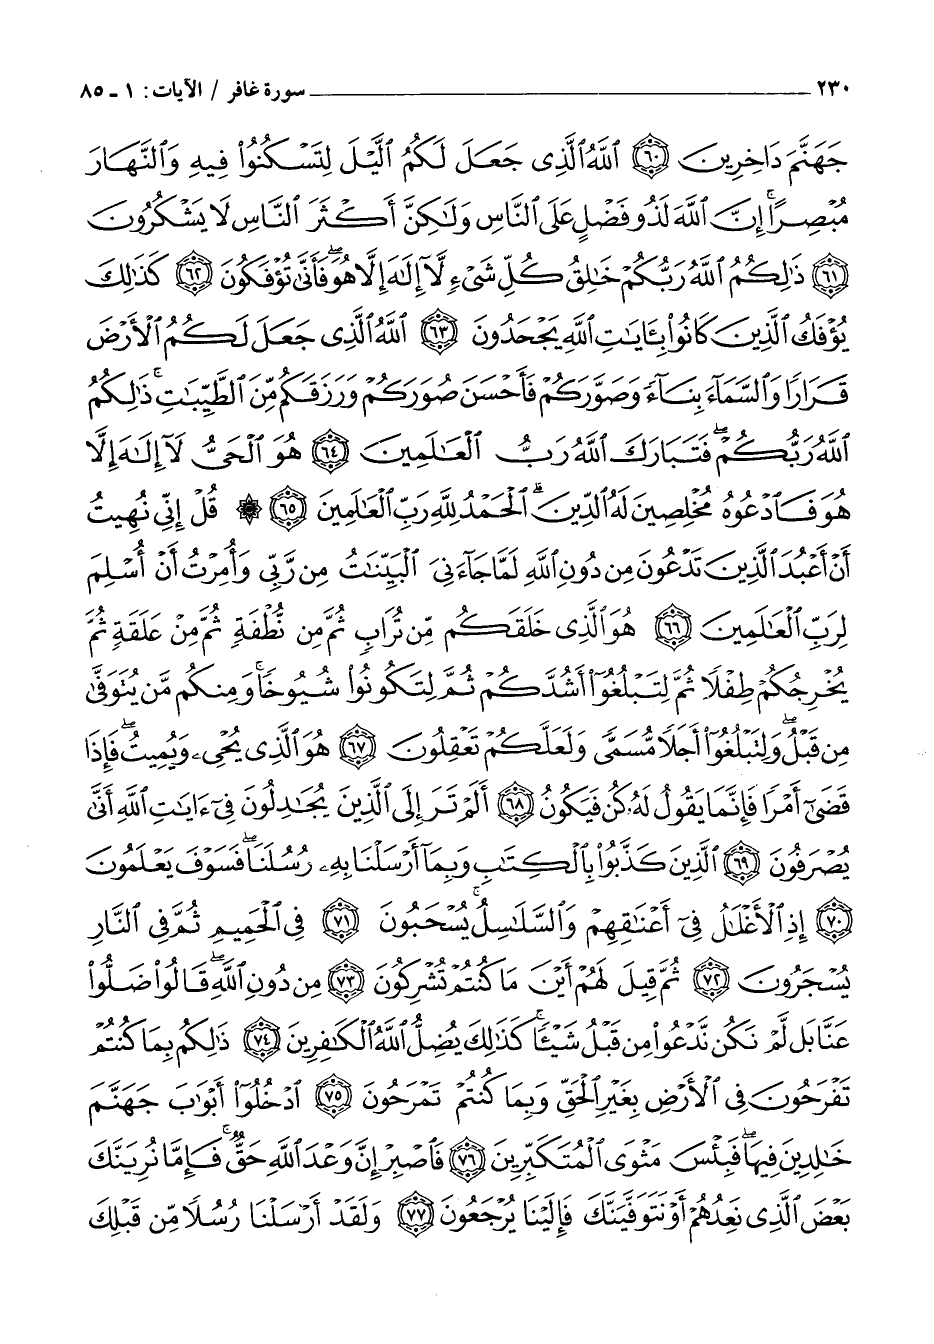 ٢٣٠ ــــــــــــــــــــ سورة غافر / الآيات: ١ - ٨٥
جَهَنَّمَ دَاخِرِينَ ﴿٦٠﴾ ٱللَّهُ ٱلَّذِى جَعَلَ لَكُمُ ٱلَّيْلَ لِتَسْكُنُوا۟ فِيهِ وَٱلنَّهَارَ
مُبْصِرًا ۚ إِنَّ ٱللَّهَ لَذُو فَضْلٍ عَلَى ٱلنَّاسِ وَلَٰكِنَّ أَكْثَرَ ٱلنَّاسِ لَا يَشْكُرُونَ
﴿٦١﴾ ذَٰلِكُمُ ٱللَّهُ رَبُّكُمْ خَٰلِقُ كُلِّ شَىْءٍ لَّآ إِلَٰهَ إِلَّا هُوَ ۖ فَأَنَّىٰ تُؤْفَكُونَ ﴿٦٢﴾ كَذَٰلِكَ
يُؤْفَكُ ٱلَّذِينَ كَانُوا۟ بِـَٔايَٰتِ ٱللَّهِ يَجْحَدُونَ ﴿٦٣﴾ ٱللَّهُ ٱلَّذِى جَعَلَ لَكُمُ ٱلْأَرْضَ
قَرَارًا وَٱلسَّمَآءَ بِنَآءً وَصَوَّرَكُمْ فَأَحْسَنَ صُوَرَكُمْ وَرَزَقَكُم مِّنَ ٱلطَّيِّبَٰتِ ۚ ذَٰلِكُمُ
ٱللَّهُ رَبُّكُمْ ۖ فَتَبَارَكَ ٱللَّهُ رَبُّ ٱلْعَٰلَمِينَ ﴿٦٤﴾ هُوَ ٱلْحَىُّ لَآ إِلَٰهَ إِلَّا
هُوَ فَٱدْعُوهُ مُخْلِصِينَ لَهُ ٱلدِّينَ ۗ ٱلْحَمْدُ لِلَّهِ رَبِّ ٱلْعَٰلَمِينَ ﴿٦٥﴾ ۞ قُلْ إِنِّى نُهِيتُ
أَنْ أَعْبُدَ ٱلَّذِينَ تَدْعُونَ مِن دُونِ ٱللَّهِ لَمَّا جَآءَنِىَ ٱلْبَيِّنَٰتُ مِن رَّبِّى وَأُمِرْتُ أَنْ أُسْلِمَ
لِرَبِّ ٱلْعَٰلَمِينَ ﴿٦٦﴾ هُوَ ٱلَّذِى خَلَقَكُم مِّن تُرَابٍ ثُمَّ مِن نُّطْفَةٍ ثُمَّ مِنْ عَلَقَةٍ ثُمَّ
يُخْرِجُكُمْ طِفْلًا ثُمَّ لِتَبْلُغُوٓا۟ أَشُدَّكُمْ ثُمَّ لِتَكُونُوا۟ شُيُوخًا ۚ وَمِنكُم مَّن يُتَوَفَّىٰ
مِن قَبْلُ ۖ وَلِتَبْلُغُوٓا۟ أَجَلًا مُّسَمًّى وَلَعَلَّكُمْ تَعْقِلُونَ ﴿٦٧﴾ هُوَ ٱلَّذِى يُحْىِۦ وَيُمِيتُ ۖ فَإِذَا
قَضَىٰٓ أَمْرًا فَإِنَّمَا يَقُولُ لَهُۥ كُن فَيَكُونُ ﴿٦٨﴾ أَلَمْ تَرَ إِلَى ٱلَّذِينَ يُجَٰدِلُونَ فِىٓ ءَايَٰتِ ٱللَّهِ أَنَّىٰ
يُصْرَفُونَ ﴿٦٩﴾ ٱلَّذِينَ كَذَّبُوا۟ بِٱلْكِتَٰبِ وَبِمَآ أَرْسَلْنَا بِهِۦ رُسُلَنَا ۖ فَسَوْفَ يَعْلَمُونَ
﴿٧٠﴾ إِذِ ٱلْأَغْلَٰلُ فِىٓ أَعْنَٰقِهِمْ وَٱلسَّلَٰسِلُ ۚ يُسْحَبُونَ ﴿٧١﴾ فِى ٱلْحَمِيمِ ثُمَّ فِى ٱلنَّارِ
يُسْجَرُونَ ﴿٧٢﴾ ثُمَّ قِيلَ لَهُمْ أَيْنَ مَا كُنتُمْ تُشْرِكُونَ ﴿٧٣﴾ مِن دُونِ ٱللَّهِ ۖ قَالُوا۟ ضَلُّوا۟
عَنَّا بَل لَّمْ نَكُن نَّدْعُوا۟ مِن قَبْلُ شَيْـًٔا ۚ كَذَٰلِكَ يُضِلُّ ٱللَّهُ ٱلْكَٰفِرِينَ ﴿٧٤﴾ ذَٰلِكُم بِمَا كُنتُمْ
تَفْرَحُونَ فِى ٱلْأَرْضِ بِغَيْرِ ٱلْحَقِّ وَبِمَا كُنتُمْ تَمْرَحُونَ ﴿٧٥﴾ ٱدْخُلُوٓا۟ أَبْوَٰبَ جَهَنَّمَ
خَٰلِدِينَ فِيهَا ۖ فَبِئْسَ مَثْوَى ٱلْمُتَكَبِّرِينَ ﴿٧٦﴾ فَٱصْبِرْ إِنَّ وَعْدَ ٱللَّهِ حَقٌّ ۚ فَإِمَّا نُرِيَنَّكَ
بَعْضَ ٱلَّذِى نَعِدُهُمْ أَوْ نَتَوَفَّيَنَّكَ فَإِلَيْنَا يُرْجَعُونَ ﴿٧٧﴾ وَلَقَدْ أَرْسَلْنَا رُسُلًا مِّن قَبْلِكَ